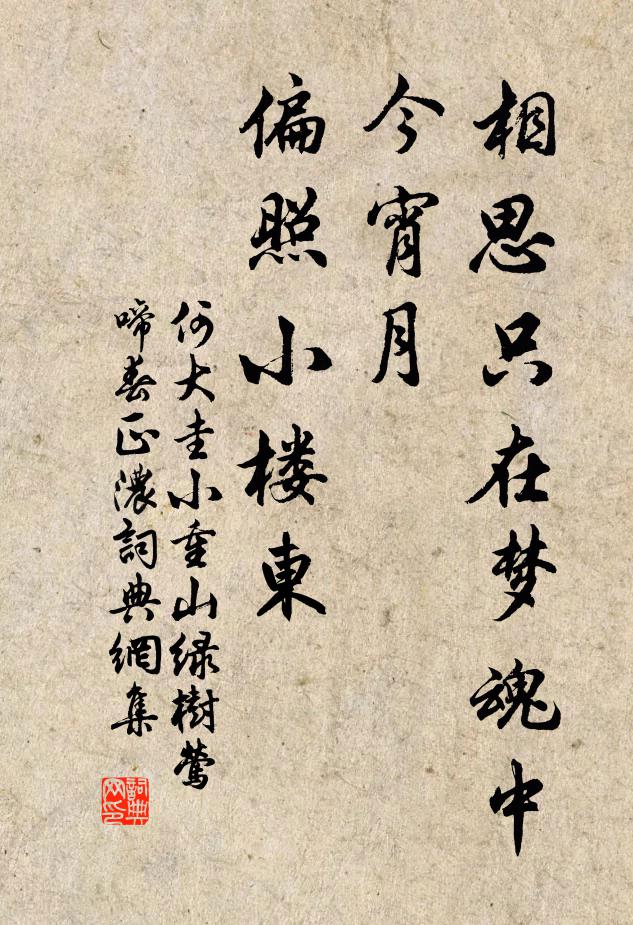 相思只在梦魂中
今宵月
偏照小楼東
何大圭小重山绿樹鶯
啼春正濃詞典網集
詞典
网印